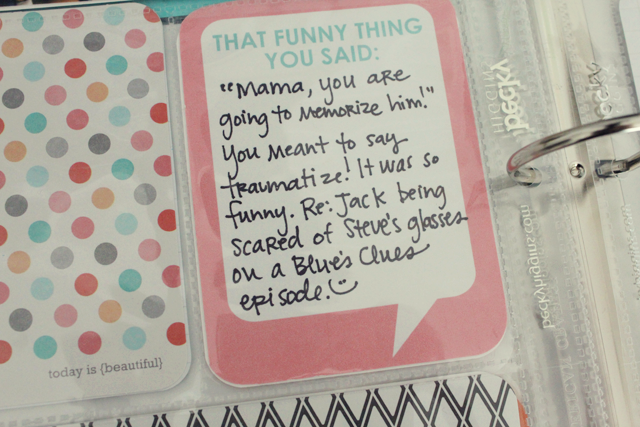 THAT FUNNY THING
YOU SAID:
"Mama, you are
going to memorize him!"
You meant to say
traumatize! It was so
funny. Re: Jack being
scared of Steve's glasses
on a Blue's Clues
episode.
today is {beautiful}
becky